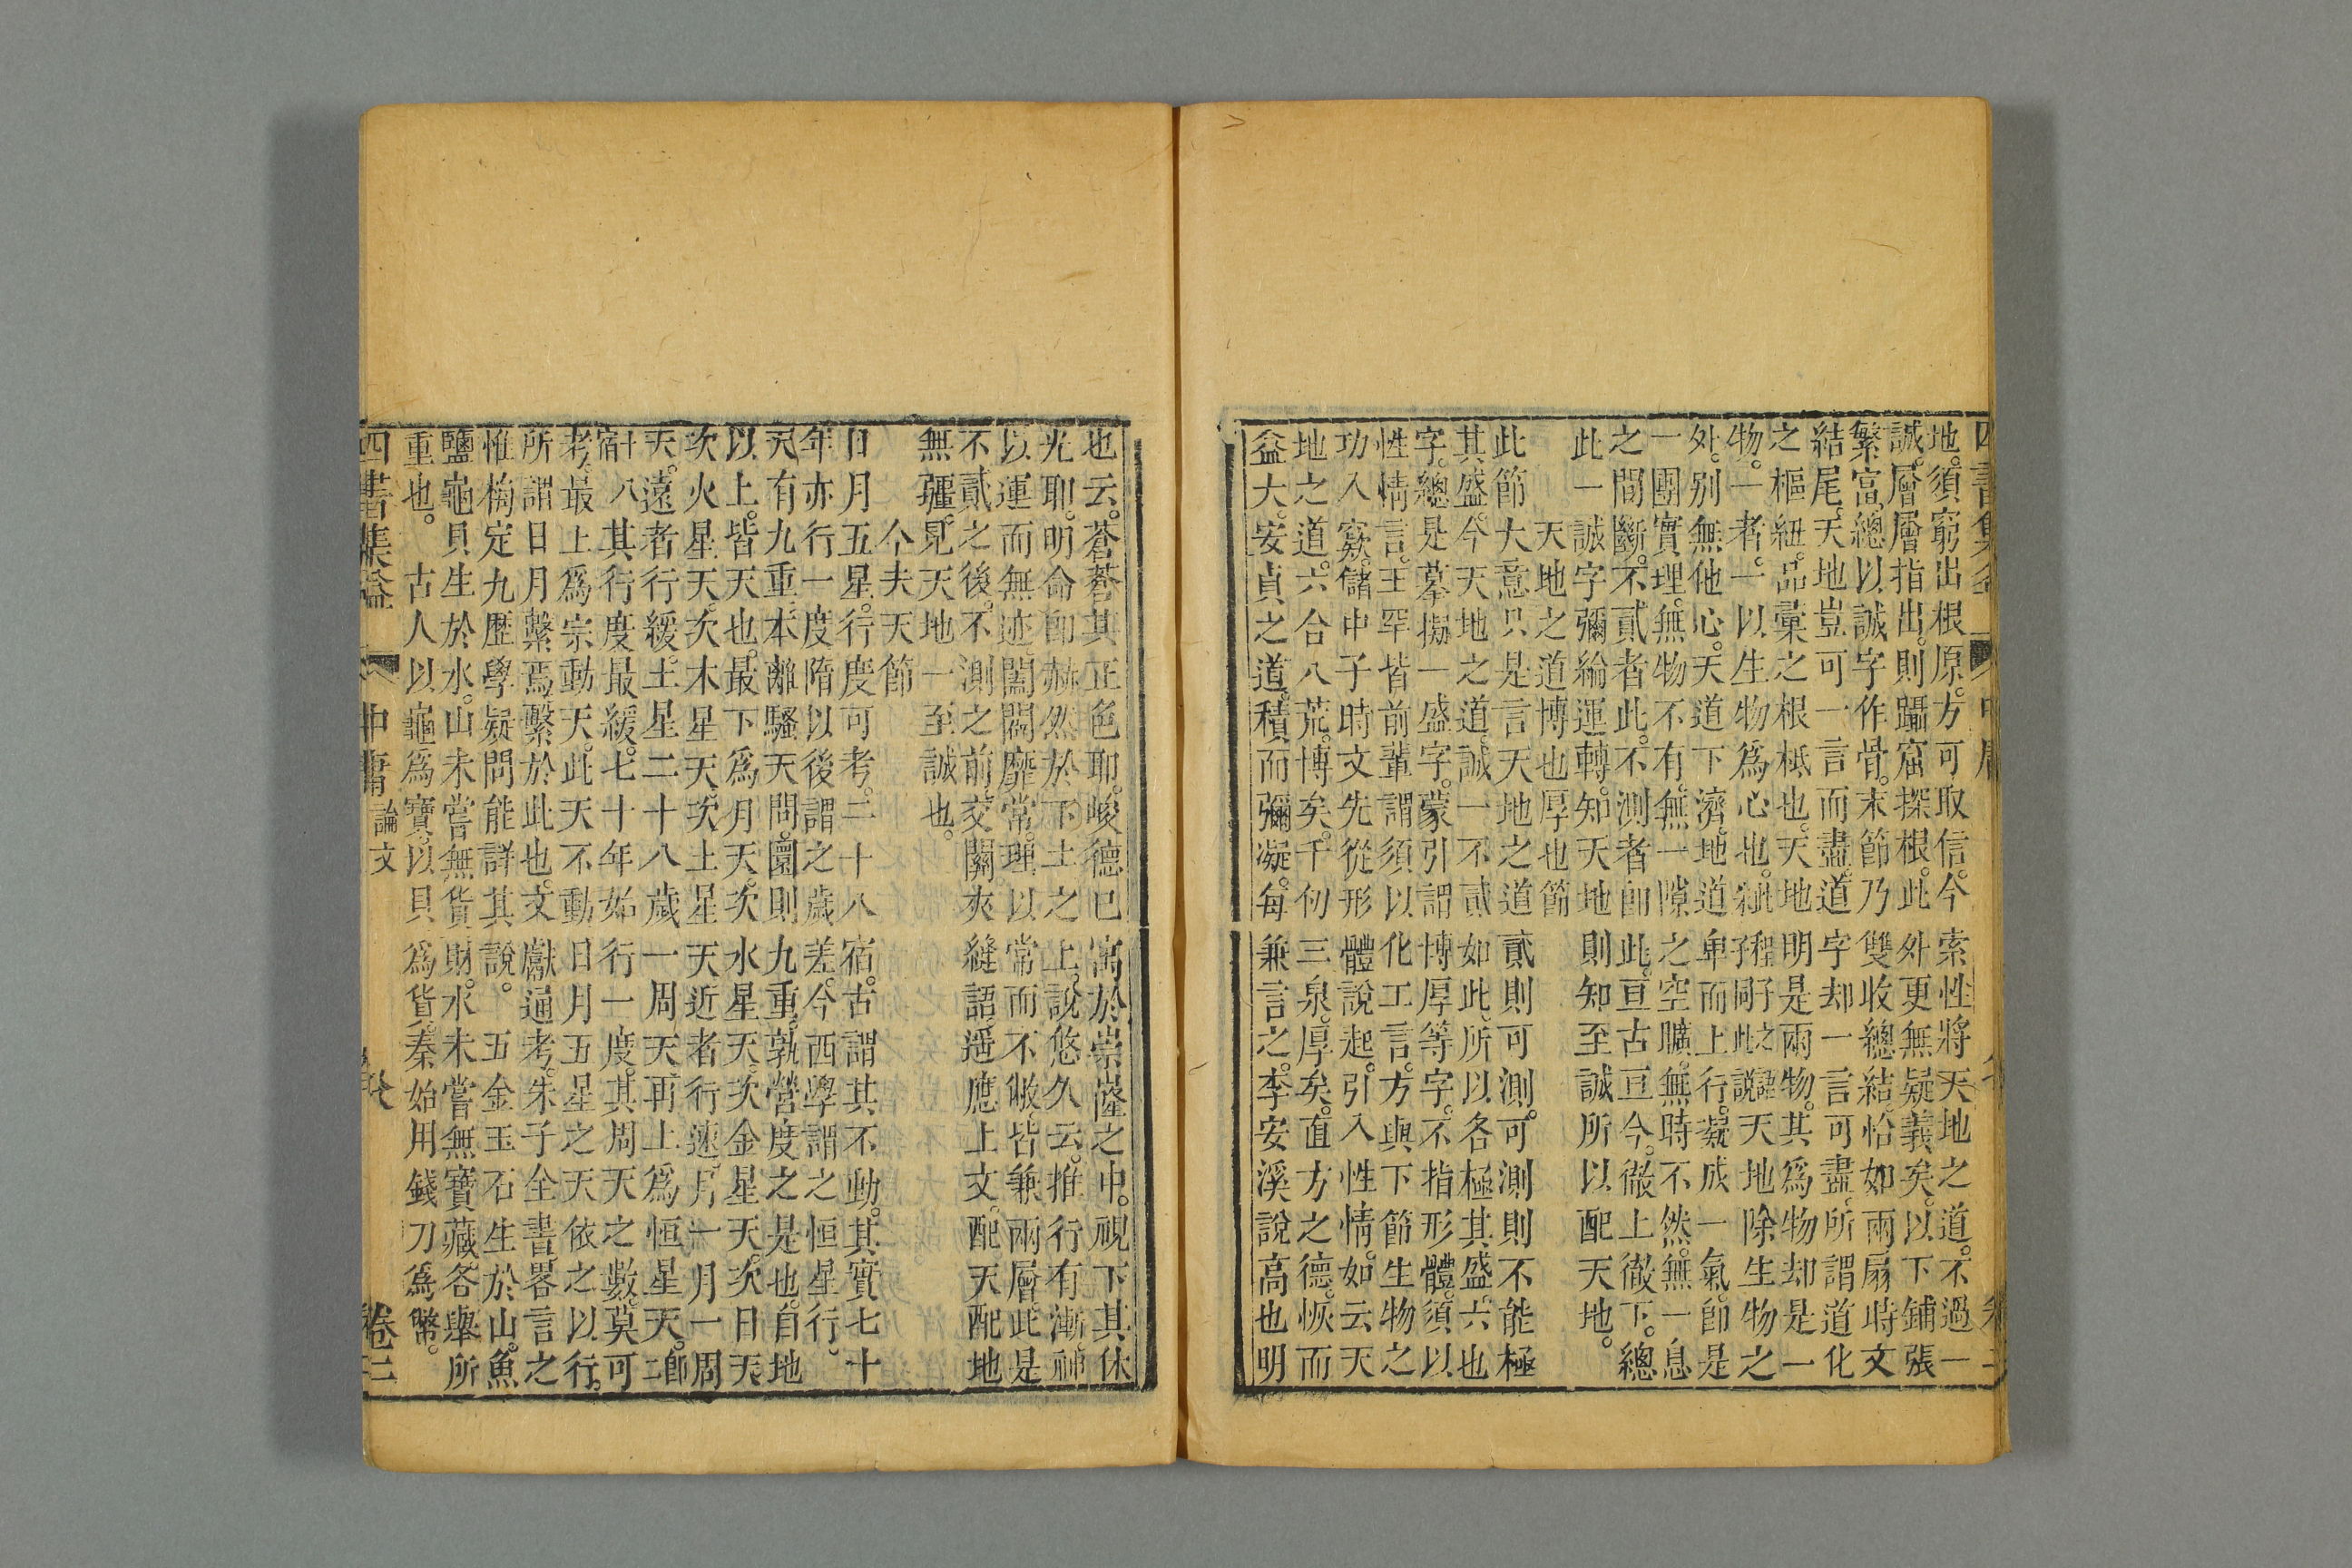 地。須窮出根原。方可取信。今索性將天地之道。不過一
誠。層層指出。則躡窟探根。此外更無疑義矣。以下鋪張
繁富。總以誠字作骨。末節乃雙收總結。恰如兩扇時文
結尾。天地豈可一言而盡。道字却一言可盡。所謂道化
之樞紐。品彙之根柢也。天地明是兩物。其為物却是一
物。一者。一以生物為心也。程子之語朱子同此說天地除生物之
外。別無他心。天道下濟。地道卑而上行。凝成一氣。即是
一團實理。無物不有。無一隙之空曠。無時不然。無一息
之間斷。不貳者此。不測者即此。亘古亘今。徹上徹下。總
此一誠字彌綸運轉。知天地則知至誠所以配天地。
天地之道博也厚也節
此節大意只是言天地之道貳則可測。可測則不能極
其盛。今天地之道。誠一不貳如此。所以各極其盛。六也
字。總是摹擬一盛字。蒙引謂博厚等字。不指形體。須以
性情言。王罕皆前輩謂須以化工言。方與下節生物之
功入竅。儲中子時文先從形體說起。引入性情。如云天
地之道。六合八荒。博矣。千仞三泉。厚矣。直方之德。恢而
益大。安貞之道。積而彌凝。每兼言之。李安溪說高也明
也云。蒼蒼其正色耶。峻德已寓於崇窿之中。視下其休
光耶。明命即赫然於下土之上。說悠久云。推行有漸。神
以運而無迹。闔闢靡常。理以常而不敝。皆兼兩層此是
不貳之後。不測之前。交關夾縫語。遥應上文。配天配地
無疆。見天地一至誠也。
今夫天節
日月五星。行度可考。二十八宿。古謂其不動。其實七十
年亦行一度隋以後謂之歲差。今西學謂之恒星行。
天有九重。本離騷天問。圜則九重。孰營度之是也。自地
以上。皆天也。最下為月天。次水星天。次金星天。次日天。
次火星天。次木星天。次土星天近者行速。月一月一周
天。遠者行緩。土星二十八歲一周天。再上為恒星天。即二
十八宿其行度最緩。七十年始行一度。其周天之數。莫可
考。最上為宗動天。此天不動日月五星之天依之以行。
所謂日月繫焉。繫於此也。文獻通考。朱子全書。畧言之
惟梅定九歷學疑問能詳其說。　五金玉石生於山。魚
鹽龜貝生於水。山未嘗無貨財。水未嘗無寶藏。各舉所
重也。　古人以龜為寶。以貝為貨。秦始用錢刀為幣。
四書集益　中庸　論文　卷三